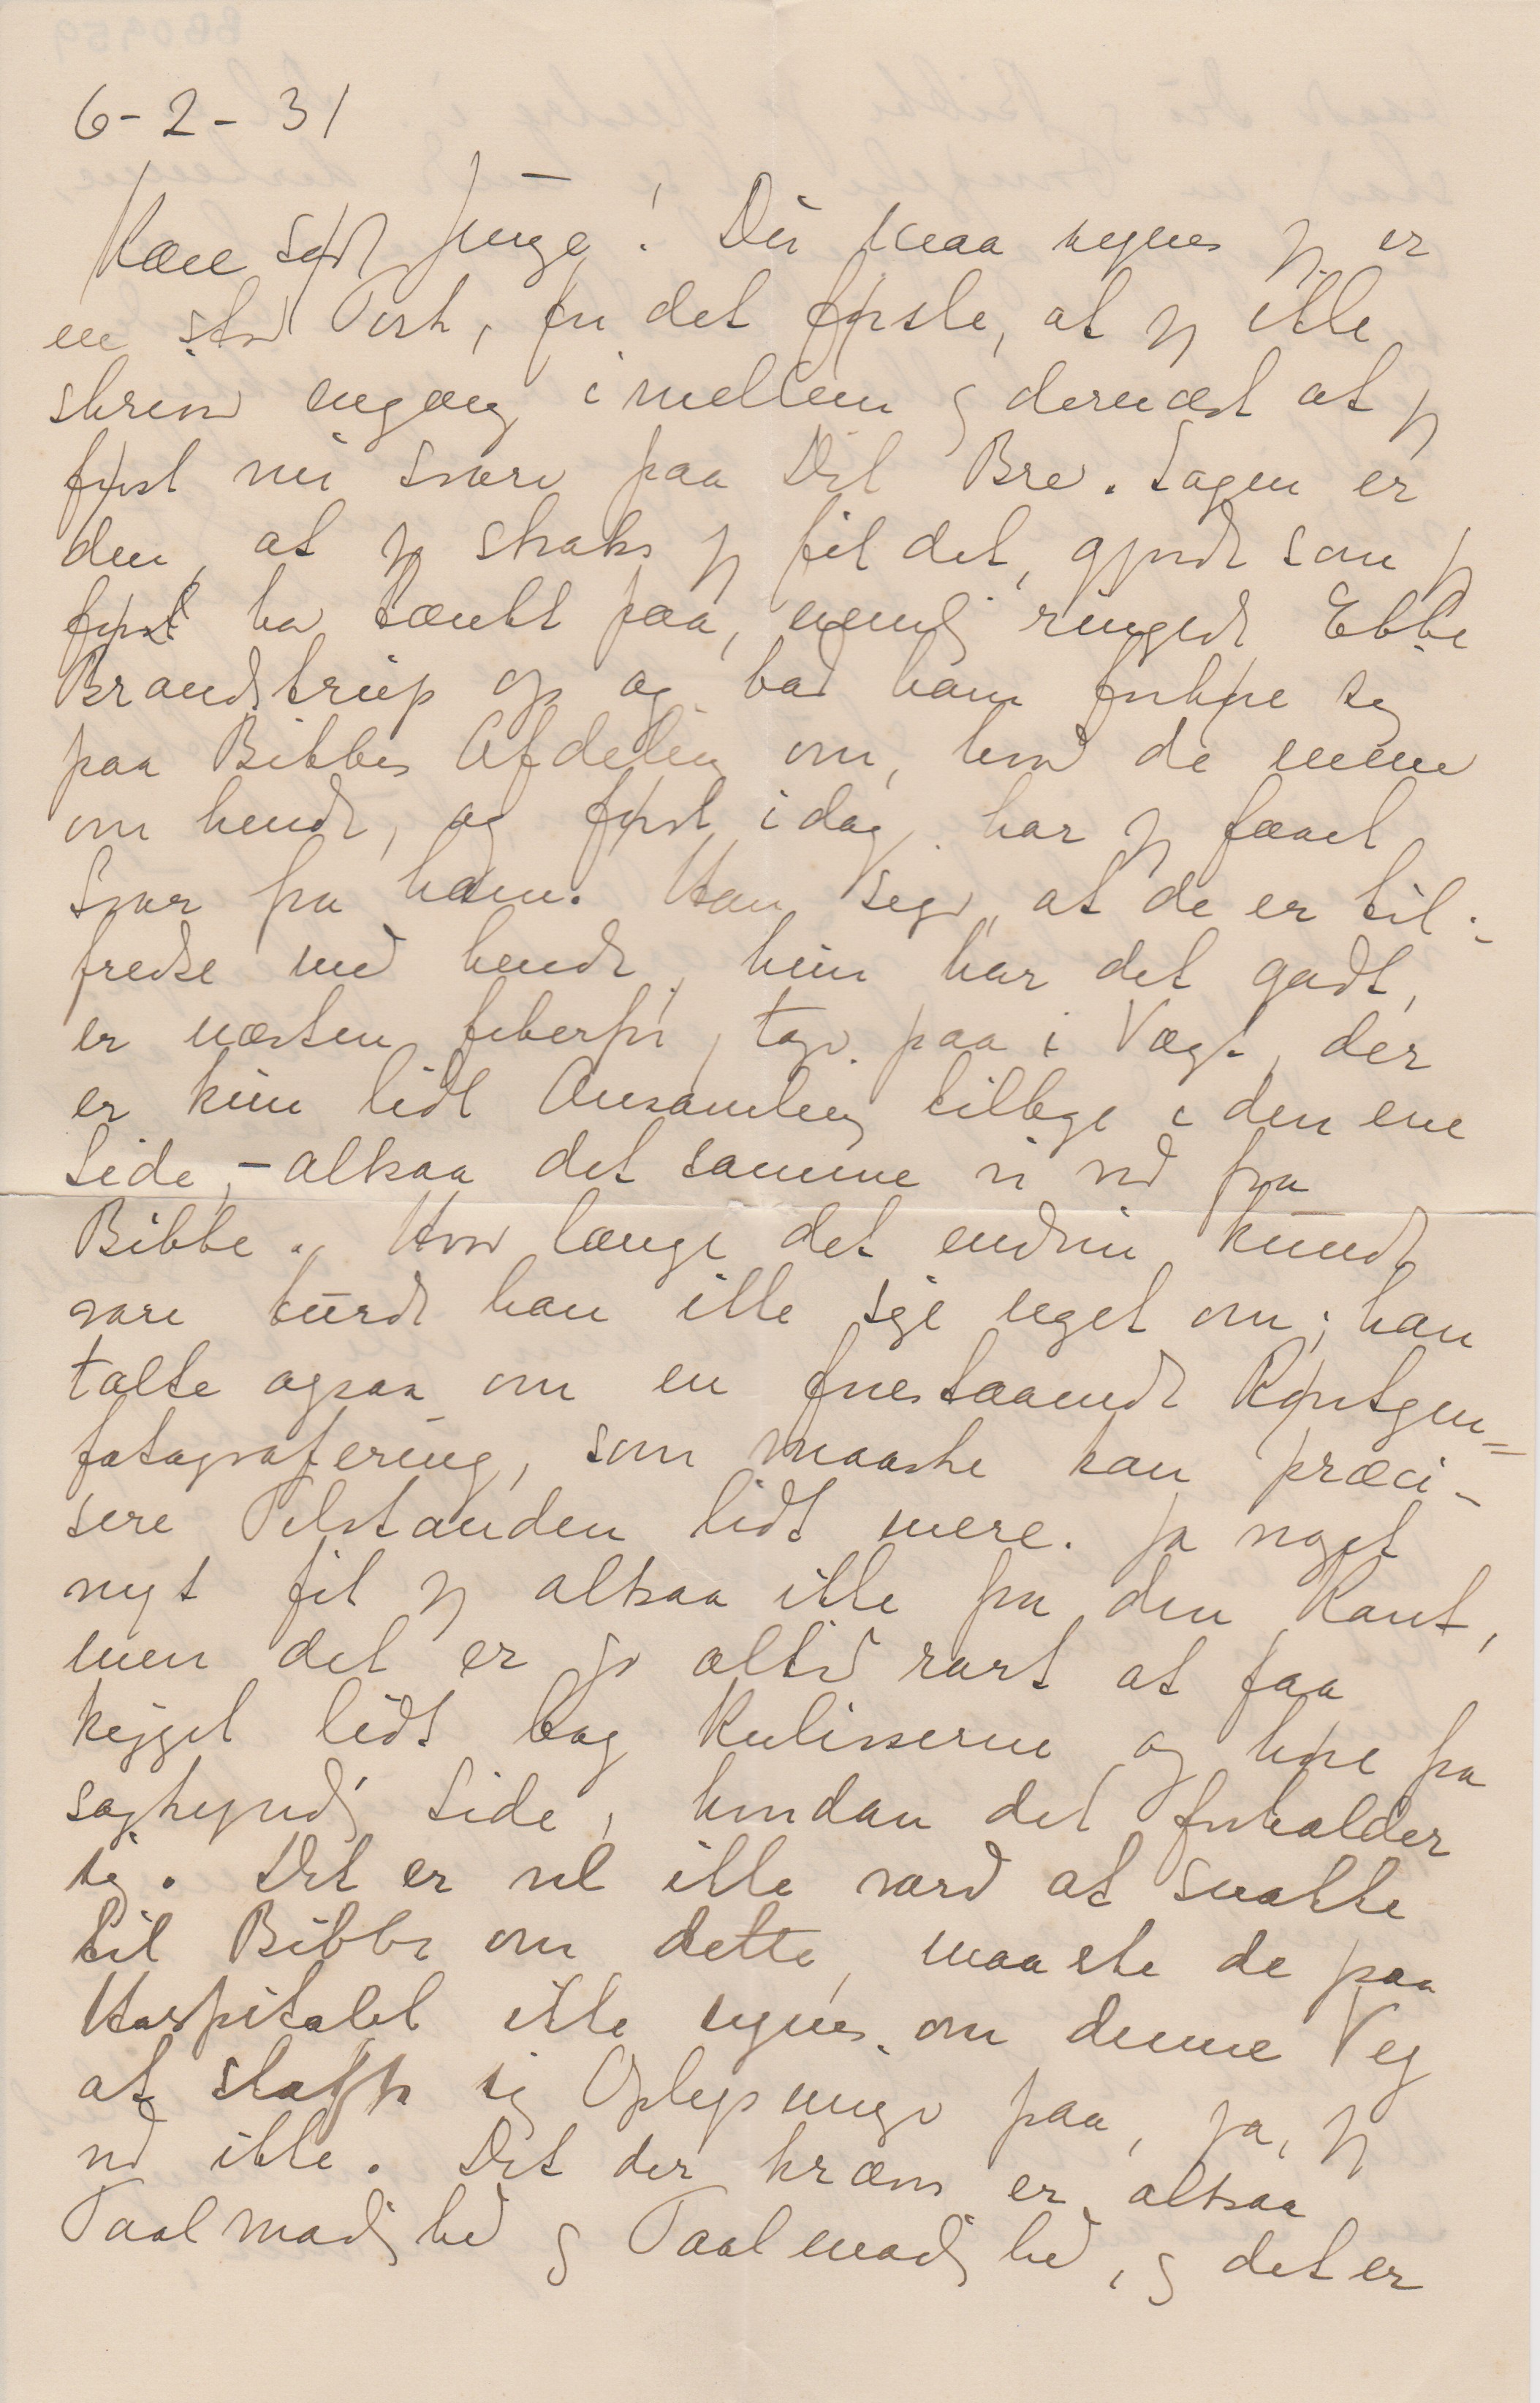 6-2-31
Kære søde Junge! Du maa synes jeg er
en stor Torsk, for det første, at jeg ikke
skriver engang imellem og dernæst at jeg
først nu svarer paa Dit Brev. Sagen er
den, at jeg straks jeg fik det, gjorde som jeg
først har tænkt paa, nemlig ringede Ebbe
Brandstrup op og bad ham forhøre sig
paa Bibbes Afdeling om, hvad de mener
om hende, og først idag har jeg faaet
Svar fra ham. Han siger, at de er til-
fredse med hende, hun har det godt,
er næsten feberfri, tager paa i Vægt, der
er kun lidt Ansamling tilbage i den ene
Side, - altsaa det samme vi ved fra
Bibbe. Hvor længe det endnu kunde
vare turde han ikke sige noget om; han
talte ogsaa om en forestaaende Røntgen=
fotografering, som maaske kan præci-
sere Tilstanden lidt mere. Ja noget
nyt fik jeg altsaa ikke fra den Kant,
men det er jo altid rart at faa
kigget lidt bag Kulisserne og høre fra
sagkyndig Side, hvordan det forholder
sig. Det er vel ikke værd at snakke
til Bibbe om dette, maaske de paa
Hospitalet ikke synes om denne Vej
at skaffe sig Oplysninger paa, ja, jeg
ved ikke. Det der kræves er altsaa
Taalmodighed og Taalmodighed, og det er